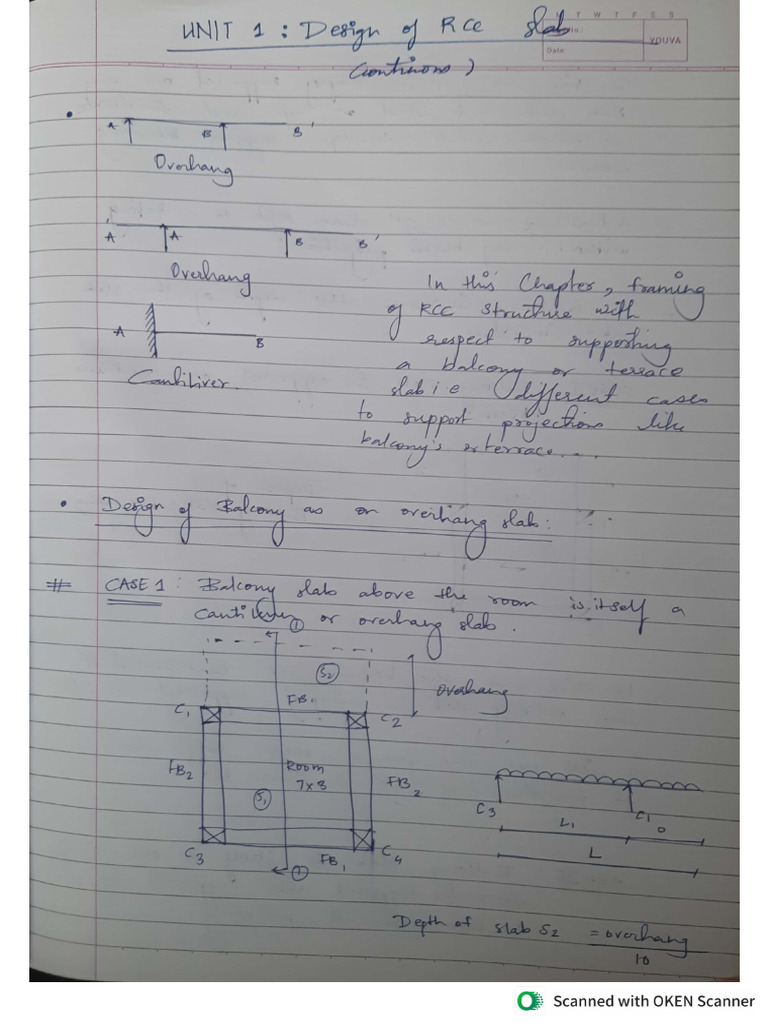 UNIT 1 : Design of RCC slab
(continous)
M T W T F S S
Date:
YOUVA
A B B'
Overhang
A' A B B'
Overhang
A B
Cantiliver.
In this Chapter, framing
of RCC structure with
respect to supporting
a balcony or terrace
slab i e different cases
to support projections like
balcony's or terrace....
Design of Balcony as on overhang slab:
# CASE 1 : Balcony slab above the room is itself a
cantilever or overhang slab.
1
S2
overhang
FB1
C1 C2
FB2 Room FB2
7x3
S1
C3 C4
FB1
1
C3 C1
L1 O
L
Depth of slab S2 = overhang
10
Scanned with OKEN Scanner